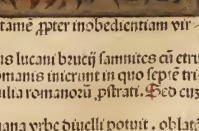 tamē ꝓpter inobedientiam vir
us lucani brucij samnites cū etru
omanis inierunt in quo septē tri
ilia romanorū ꝓstrati. Sed cuz
ana vrbe diuelli potuit, oblat